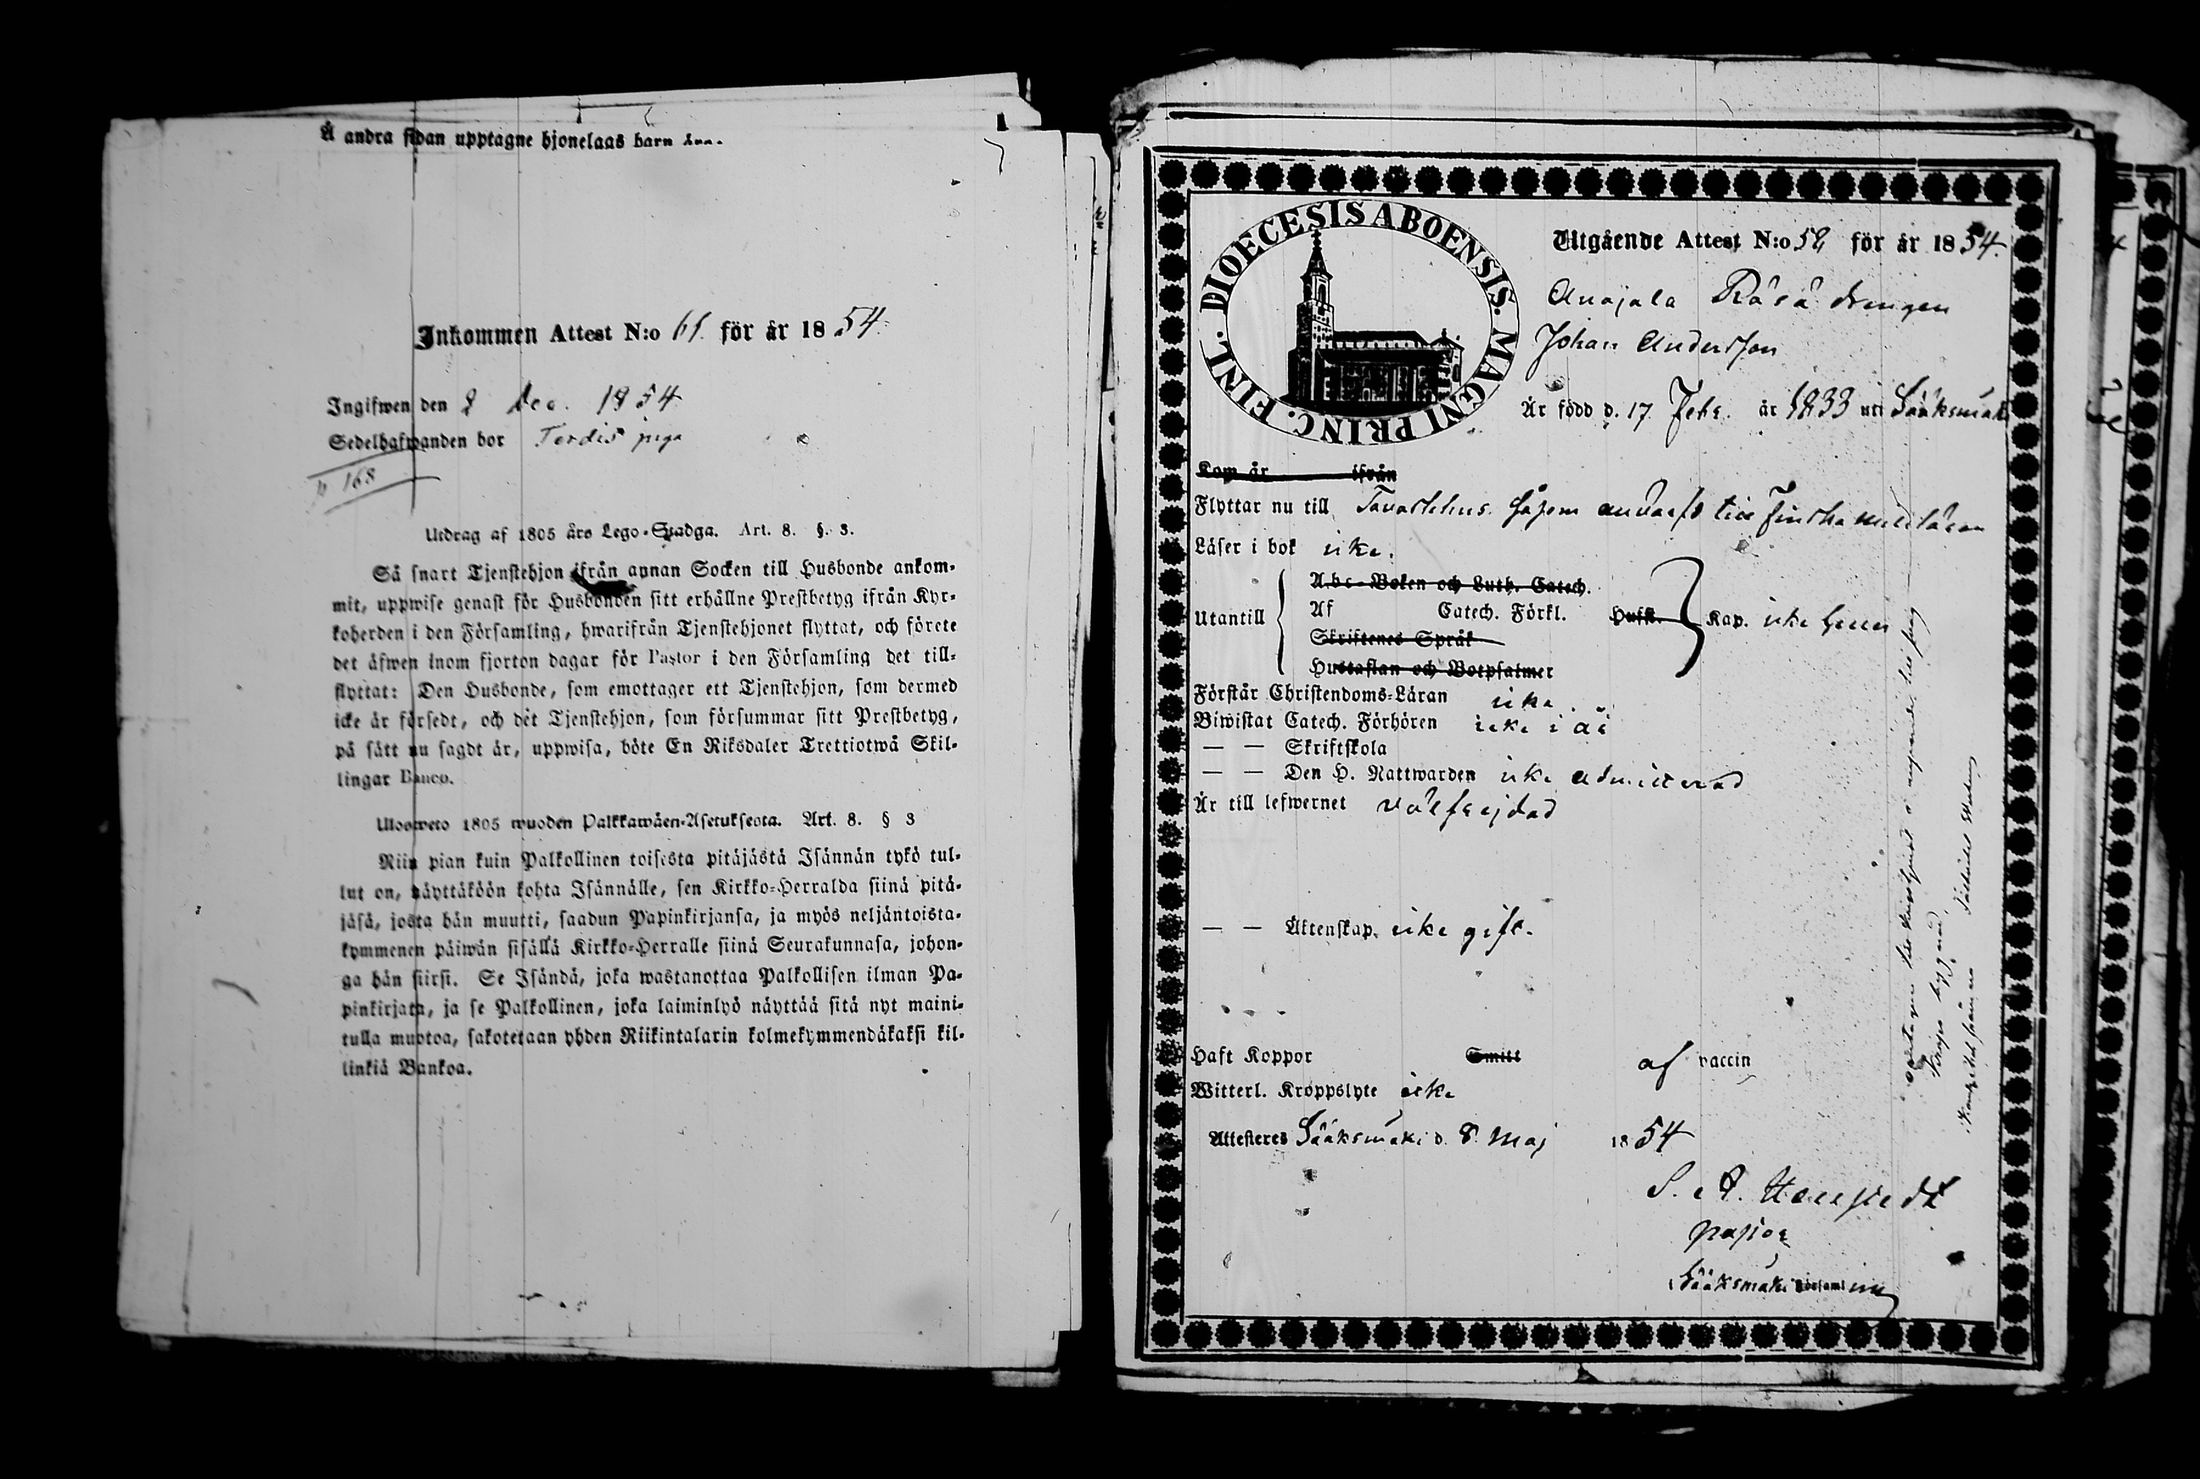 Å andra sidan upptagne hjonelaas barn äro.
Inkommen Attest N:o 61. för år 1854.
Ingifwen den 2 Dec. 1854
Sedelhafwanden bor
p 168
Utdrag af 1805 års Lego-Stadga. Art. 8. §. 3.
Så snart Tjenstehjon ifrån annan Socken till Husbonde ankom-
mit, uppwise genast för Husbonden sitt erhållne Prestbetyg ifrån Kyr-
koherden i den Församling, hwarifrån Tjenstehjonet flyttat, och förete
det äfwen inom fjorton dagar för Pastor i den Församling det till-
flyttat: Den Husbonde, som emottager ett Tjenstehjon, som dermed
icke är försedt, och det Tjenstehjon, som försummar sitt Prestbetyg,
på sätt nu sagdt är, uppwisa, böte En Riksdaler Trettiotwå Skil-
lingar Banco.
Ulosweto 1805 wuoden Palkkawäen-Asetuksesta. Art. 8. § 3
Niin pian kuin Palkollinen toisesta pitäjästä Isännän tykö tul-
lut on, näyttäköön kohta Isännälle, sen Kirkko-Herralda siinä pitä-
jäsä, josta hän muutti, saadun Papinkirjansa, ja myös neljäntoista-
kymmenen päiwän sisällä Kirkko-Herralle siinä Seurakunnasa, johon-
ga hän siirsi. Se Isändä, joka wastanottaa Palkollisen ilman Pa-
pinkirjata, ja se Palkollinen, joka laiminlyö näyttää sitä nyt maini-
tulla muotoa, sakotetaan yhden Riikintalarin kolmekymmendäkaksi kil-
linkiä Bankoa.
DIOECESIS ABOENSIS. MAGNI PRINC. FINL.
Utgående Attest N:o 52 för år 1854.
Anajala Räsä drengen
Johan Andersson
Är född d. 17 Febr. år 1833 uti Sääksmäki
Kom år ifrån
Flyttar nu till Tavastehus för Finska militären
Läser i bok icke.
Utantill
Abc-Boken och Luth. Catech.
Af Catech. Förkl.
Skriftenes Språk
Hustaflan och Botpsalmer
Husk.
Kap. icke
Förstår Christendoms-Läran icke
Biwistat Catech. Förhören icke i
— — Skriftskola
— — Den H. Nattwarden icke admitterad
Är till lefwernet wälfrejdad
— — Äktenskap. icke gift.
Haft Koppor Smitt af vaccin
Witterl. Kroppslyte icke
Attesteres Sääksmäki d. 8 Maj 1854
pastor
Sääksmäki församling